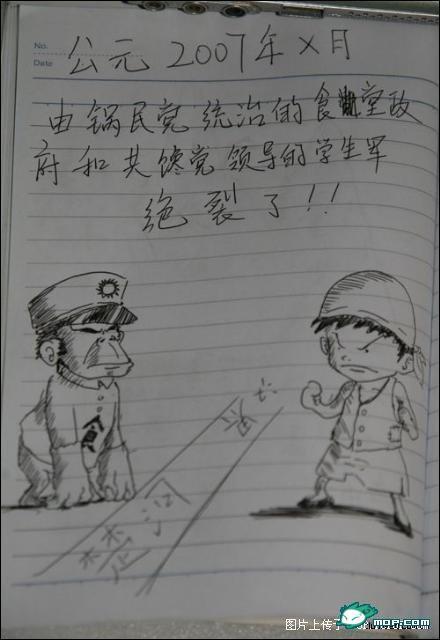 No.
Date
公元 2007年 X月
由锅民党统治的食堂政
府和共馋党领导的学生军
绝裂了!!
食
图片上传于
MOP.COM